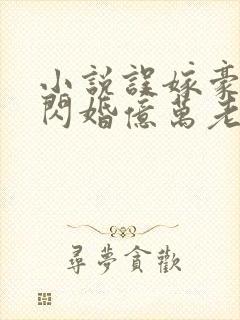 小説誤嫁豪
閃婚億萬老
尋夢貪歡